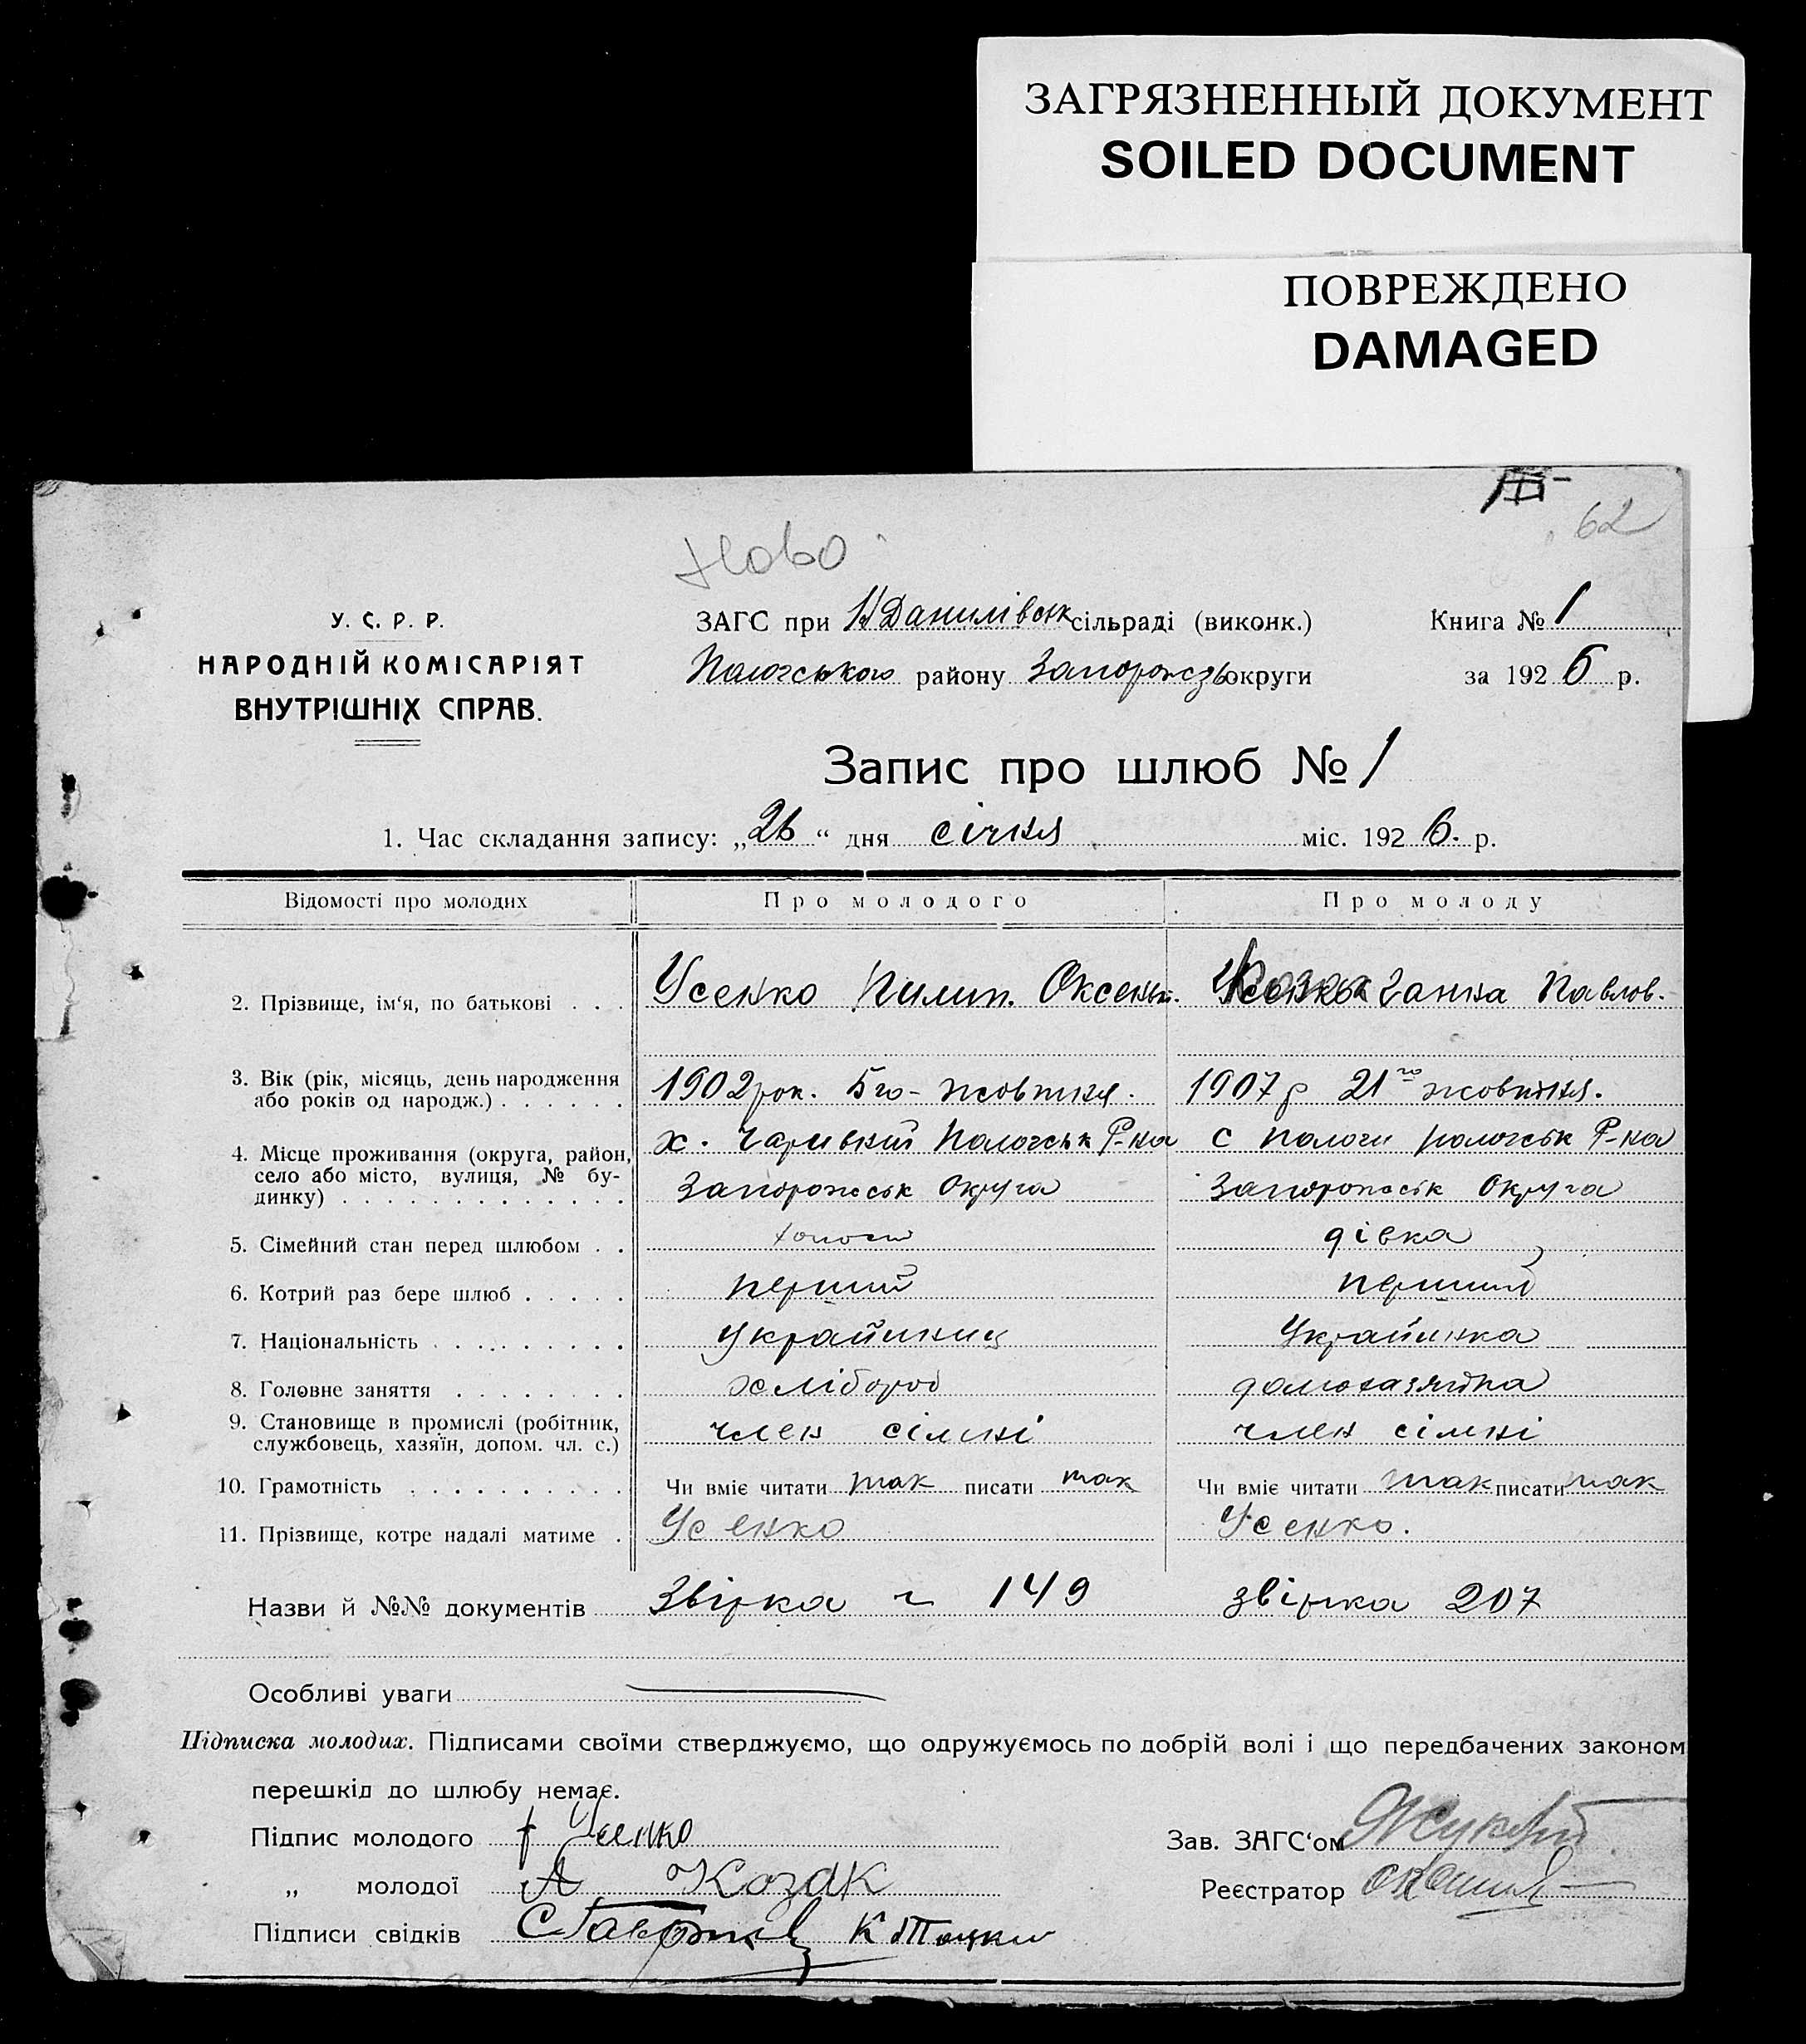 ЗАГРЯЗНЕННЫЙ ДОКУМЕНТ
SOILED DOCUMENT
ПОВРЕЖДЕНО
DAMAGED
62
Ново
У. С. Р. Р.
НАРОДНІЙ КОМІСАРІЯТ
ВНУТРІШНІХ СПРАВ.
ЗАГС при Н Данилівськ сільраді (виконк.)
Пологського району Запорожськ округи
Книга № 1
за 1926 р.
Запис про шлюб № 1
1. Час складання запису: „26“ дня січня міс. 1926. р.
Відомості про молодих Про молодого Про молоду
2. Прізвище, ім‘я, по батькові . . . Усенко Пилип. Оксеньт. Ганна Павлов.
3. Вік (рік, місяць, день народження
або років од народж.) . . . . . . 1902 рок. 5го - жовтня. 1907 р 21го жовтня.
4. Місце проживання (округа, район, х. Чаривний Пологськ Р-на с Пологи Пологськ Р-на
село або місто, вулиця, № бу- Запорожськ Округа Запорожськ Округа
динку) . . . . . . . . . . . . .
5. Сімейний стан перед шлюбом . . холост дівка
6. Котрий раз бере шлюб . . . . . перший перший
7. Національність . . . . . . . . . Украйинец Украйинка
8. Головне заняття . . . . . . . . хлібороб домохазяйка
9. Становище в промислі (робітник,
службовець, хазяїн, допом. чл. с.) член сімні член сімні
10. Грамотність . . . . . . . . . . Чи вміє читати так писати так Чи вміє читати так писати так
11. Прізвище, котре надалі матиме . Усенко Усенко.
Назви й №№ документів Звірка ч 149 звірка 207
Особливі уваги
Підписка молодих. Підписами своїми стверджуємо, що одружуємось по добрій волі і що передбачених законом
перешкід до шлюбу немає.
Підпис молодого Усенко
„ молодої А Козак
Підписи свідків
Зав. ЗАГС‘ом
Реєстратор